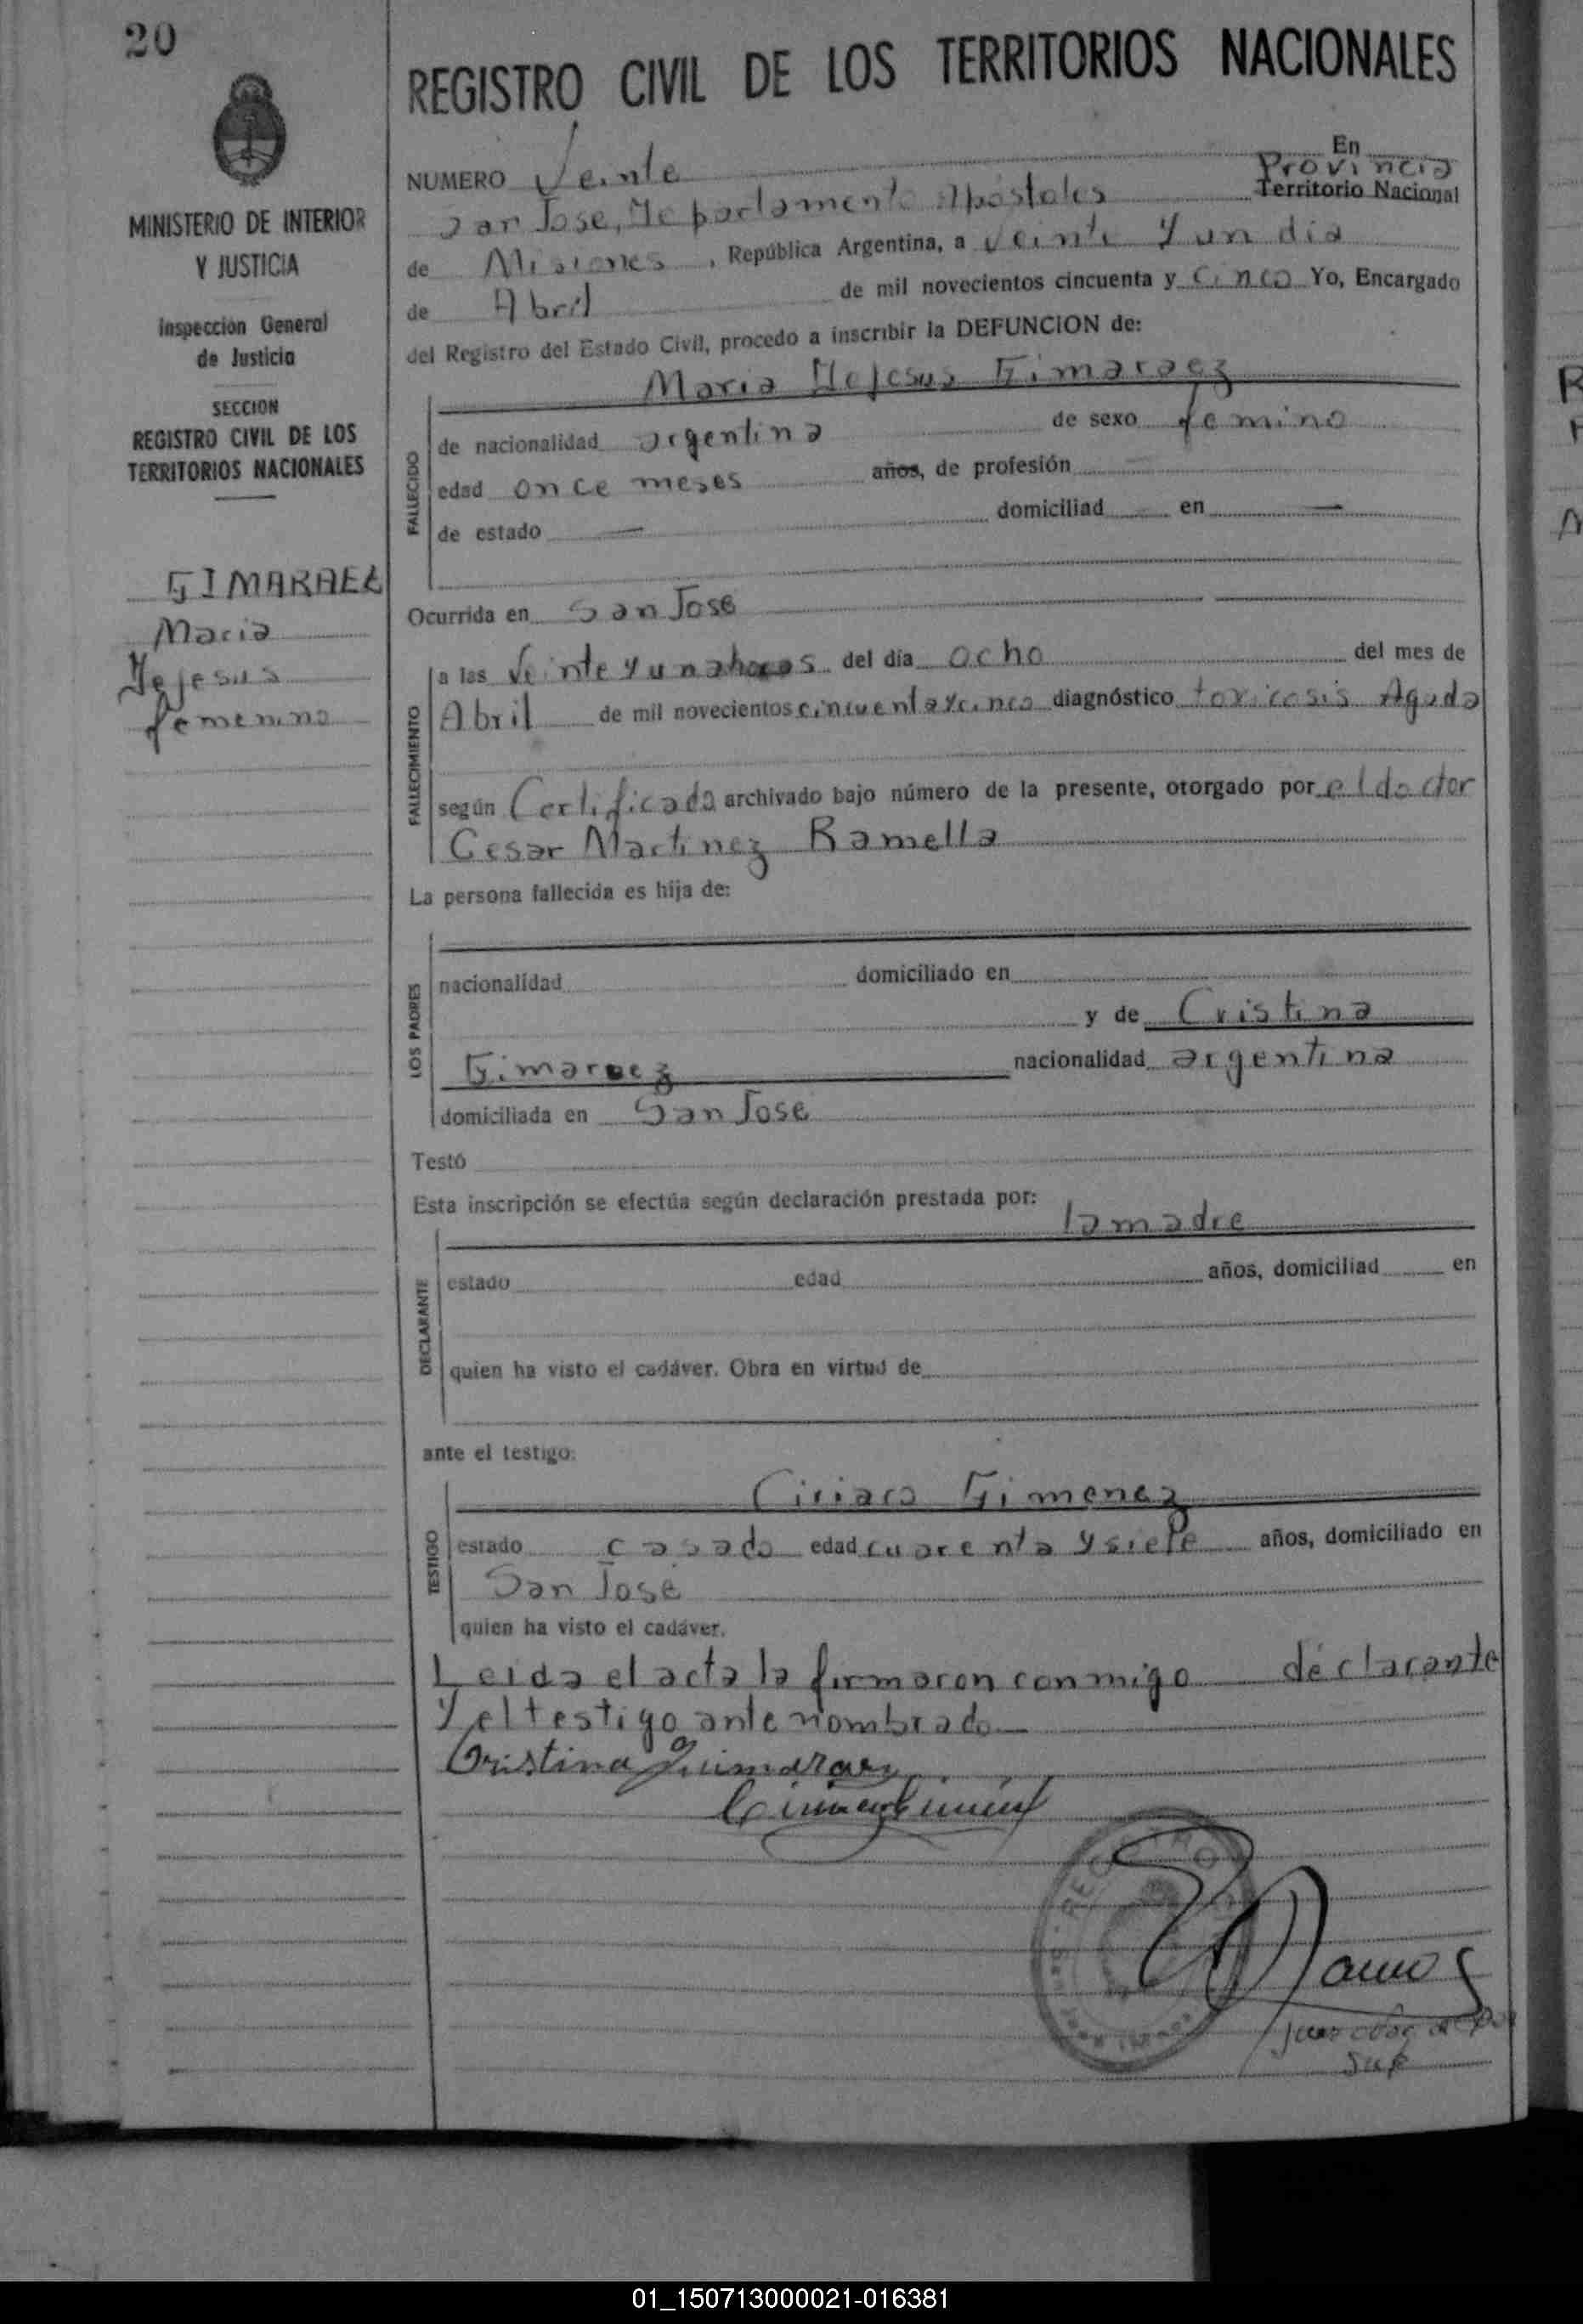 20
REGISTRO CIVIL DE LOS TERRITORIOS NACIONALES
MINISTERIO DE INTERIOR
Y JUSTICIA
Inspección General
de Justicia
SECCION
REGISTRO CIVIL DE LOS
TERRITORIOS NACIONALES
GIMARAEZ
Maria
Dejesus
femenino
En
NUMERO Veinte
Provincia
San Jose, Departamento Apostoles Territorio Nacional
de Misiones, República Argentina, a veinte y un dia
de Abril de mil novecientos cincuenta y cinco Yo, Encargado
del Registro del Estado Civil, procedo a inscribir la DEFUNCION de:
Maria Dejesus Gimaraez
FALLECIDO
de nacionalidad argentina de sexo femino
edad once meses años, de profesión
de estado — domiciliad en —
Ocurrida en San Jose
FALLECIMIENTO
a las veinte y una horas del día ocho del mes de
Abril de mil novecientos cincuenta y cinco diagnóstico toxicosis Aguda
según Certificado archivado bajo número de la presente, otorgado por el doctor
Cesar Martinez Ramella
La persona fallecida es hija de:
LOS PADRES
nacionalidad domiciliado en
y de Cristina
Gimaraez nacionalidad argentina
domiciliada en San Jose
Testó
Esta inscripción se efectúa según declaración prestada por:
la madre
DECLARANTE
estado edad años, domiciliad en
quien ha visto el cadáver. Obra en virtud de
ante el testigo:
Ciriaco Gimenez
TESTIGO
estado casado edad cuarenta y siete años, domiciliado en
San Jose
quien ha visto el cadáver.
Leida el acta la firmaron conmigo declarante
y el testigo ante nombrado
Cristina Guimaraez
Ramos
Sup
01_150713000021-016381